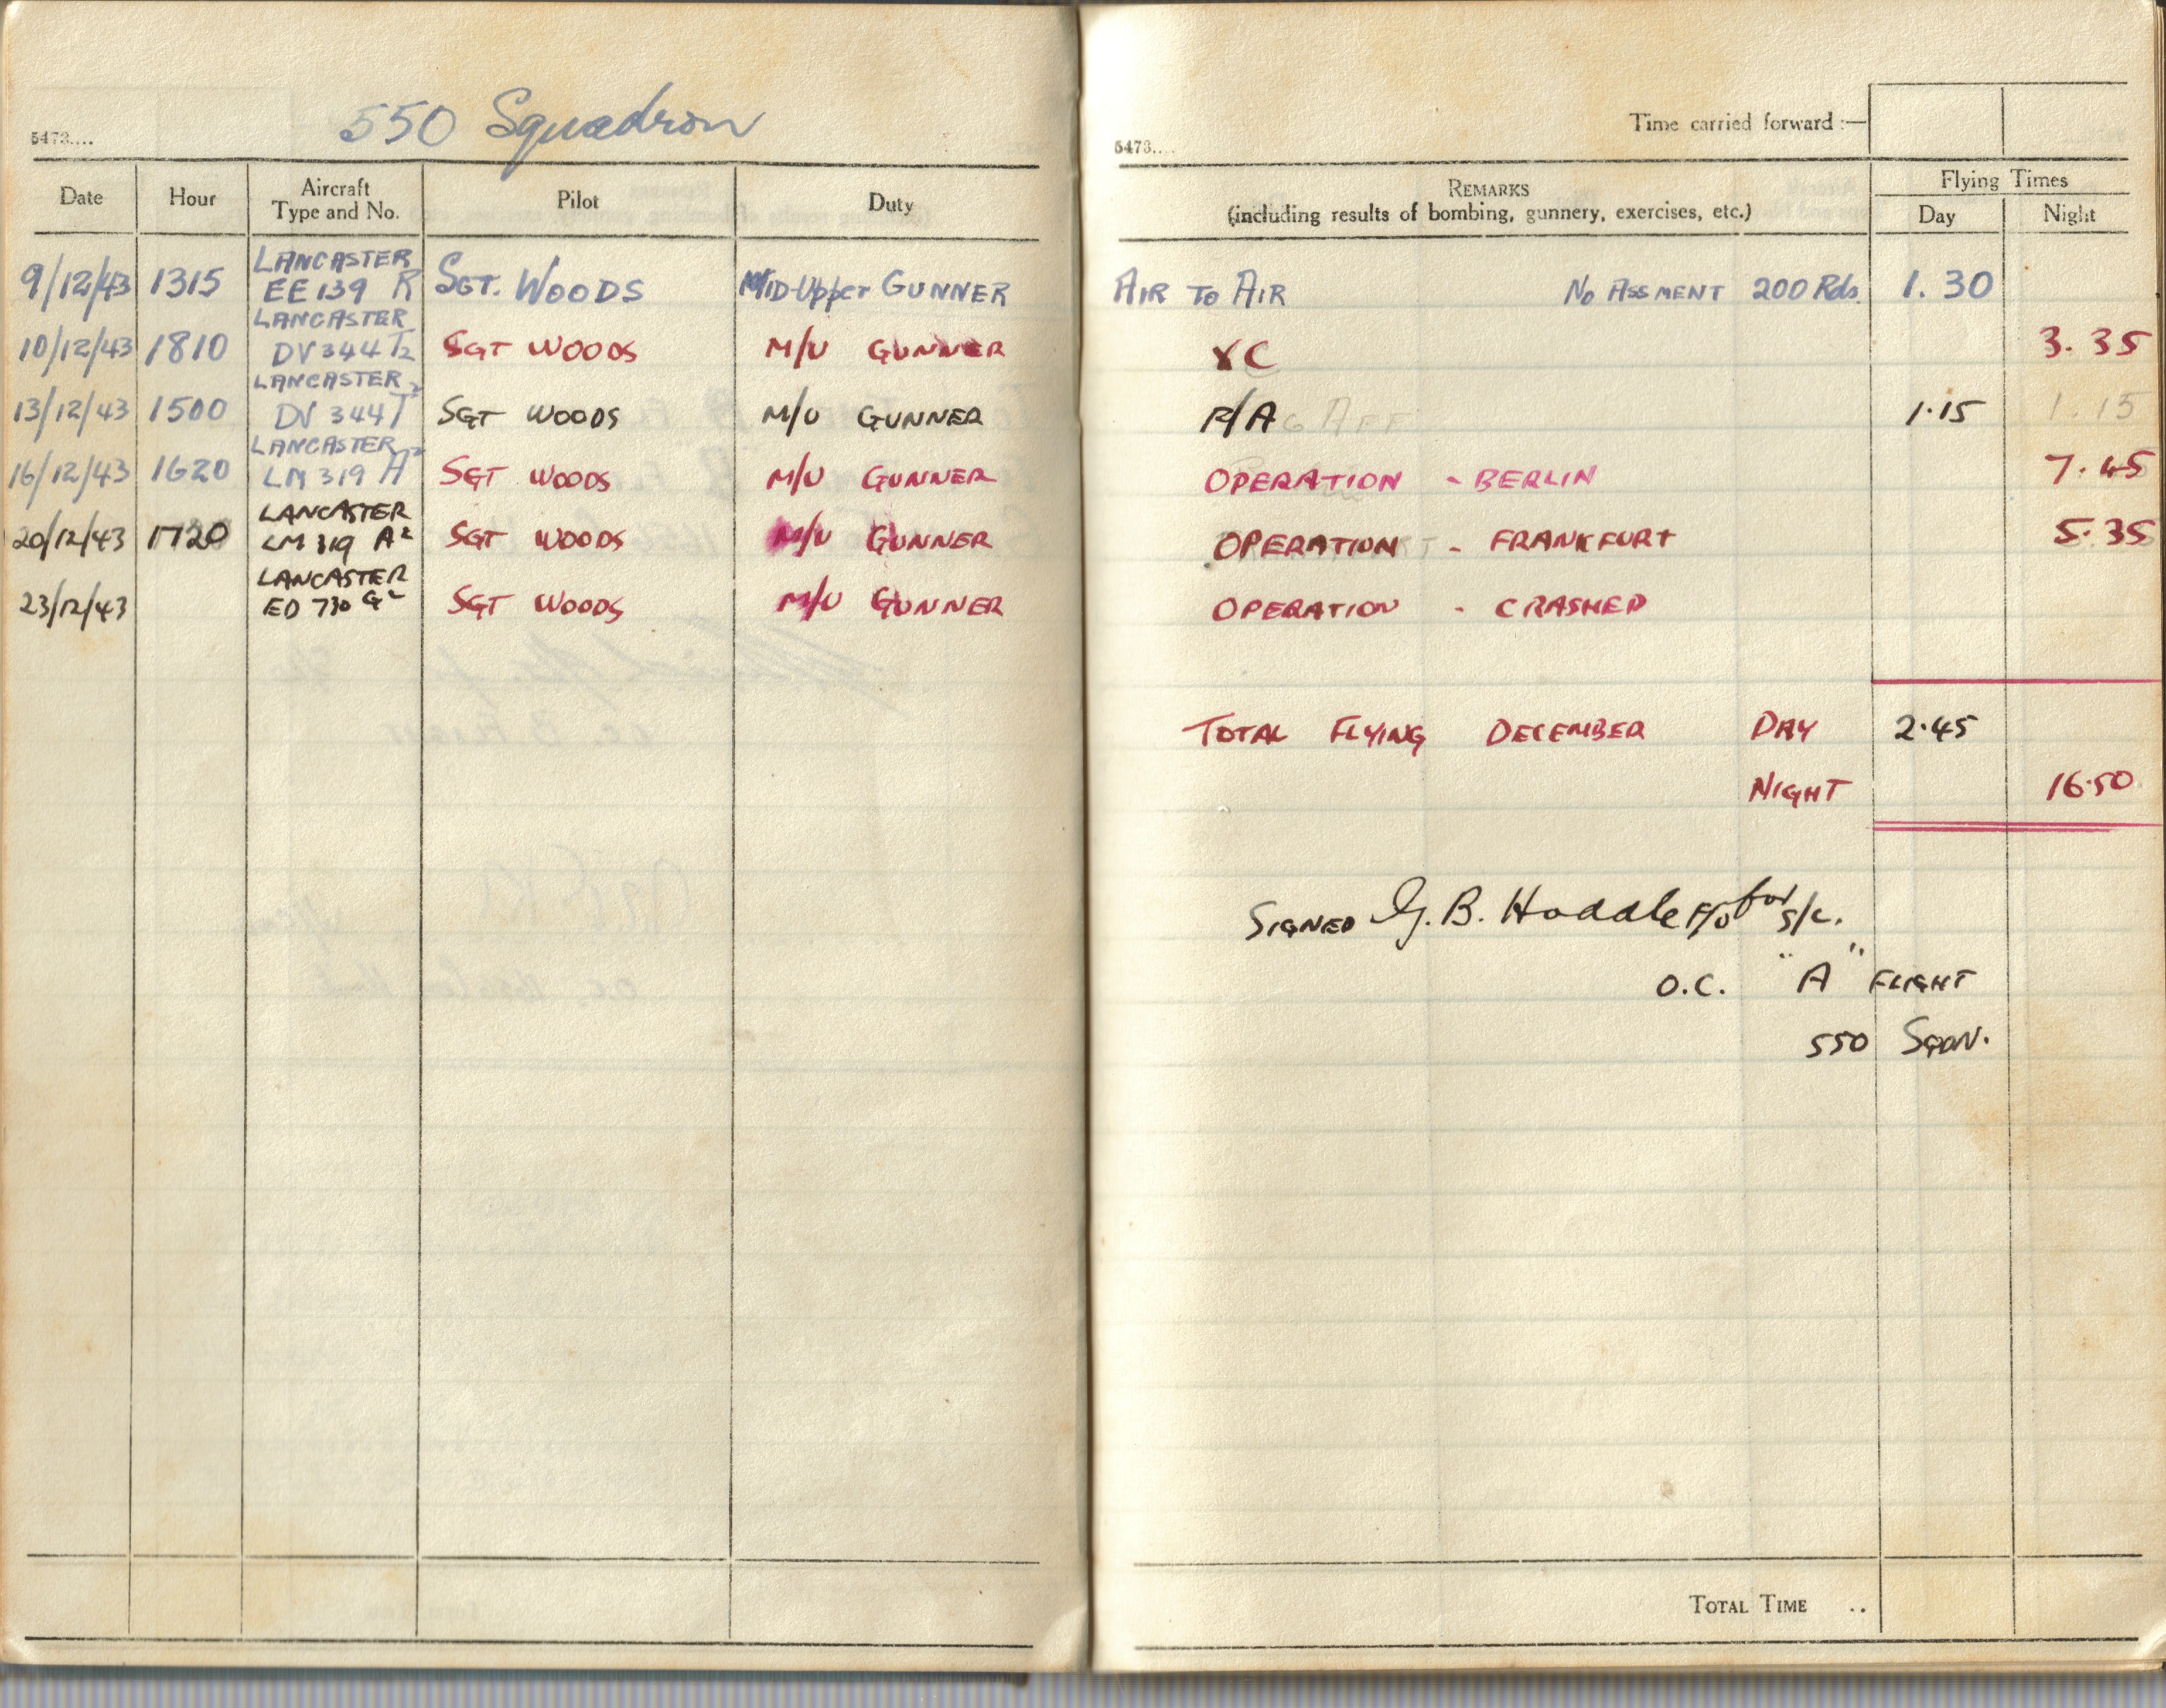 550 Squadron
5473....
Date Hour Aircraft Type and No. Pilot Duty
LANCASTER
9/12/43 1315 EE139 R SGT. WOODS MID-Upper GUNNER
LANCASTER
10/12/43 1810 DV344 T2 SGT WOODS M/U GUNNER
LANCASTER
13/12/43 1500 DV344 T2 SGT WOODS M/U GUNNER
LANCASTER
16/12/43 1620 LM319 A2 SGT WOODS M/U GUNNER
LANCASTER
20/12/43 1720 LM319 A2 SGT WOODS M/U GUNNER
LANCASTER
23/12/43 ED730 G2 SGT WOODS M/U GUNNER
Time carried forward :—
5473....
REMARKS
(including results of bombing, gunnery, exercises, etc.)
Flying Times
Day Night
AIR TO AIR NO ASSMENT 200 Rds 1.30
XC 3.35
F/A 1.15 1.15
OPERATION - BERLIN 7.45
OPERATION - FRANKFURT 5.35
OPERATION - CRASHED
TOTAL FLYING DECEMBER DAY 2.45
NIGHT 16.50
SIGNED G. B. Hoddle F/O for S/L.
O.C. "A" FLIGHT
550 SQDN.
TOTAL TIME ..